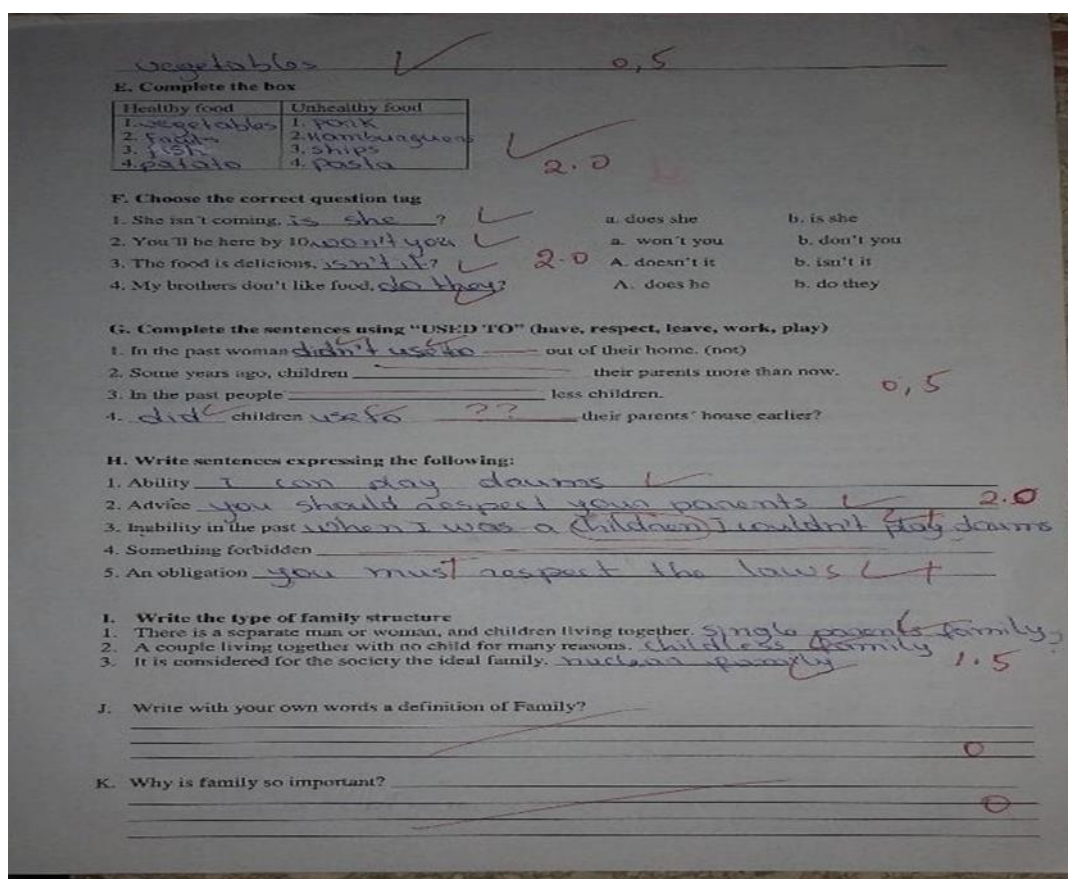 vegetables 0,5
E. Complete the box
Healthy food Unhealthy food
1. vegetables 1. Pork
2. Fruits 2. Hamburguers
3. fish 3. ships
4. patato 4. Pasta
2.0
F. Choose the correct question tag
1. She isn't coming, is she ? a. does she b. is she
2. You'll be here by 10, won't you a. won't you b. don't you
3. The food is delicious, isn't it? 2.0 A. doesn't it b. isn't it
4. My brothers don't like food, do they? A. does he b. do they
G. Complete the sentences using "USED TO" (have, respect, leave, work, play)
1. In the past woman didn't use to out of their home. (not)
2. Some years ago, children their parents more than now.
3. In the past people less children. 0,5
4. did children use to ?? their parents' house earlier?
H. Write sentences expressing the following:
1. Ability I can play drums
2. Advice you should respect your parents 2.0
3. Inability in the past when I was a children I couldn't play drums
4. Something forbidden
5. An obligation you must respect the laws
I. Write the type of family structure
1. There is a separate man or woman, and children living together. Single parents family,
2. A couple living together with no child for many reasons. childless family
3. It is considered for the society the ideal family. nuclear family 1.5
J. Write with your own words a definition of Family?
0
K. Why is family so important?
0